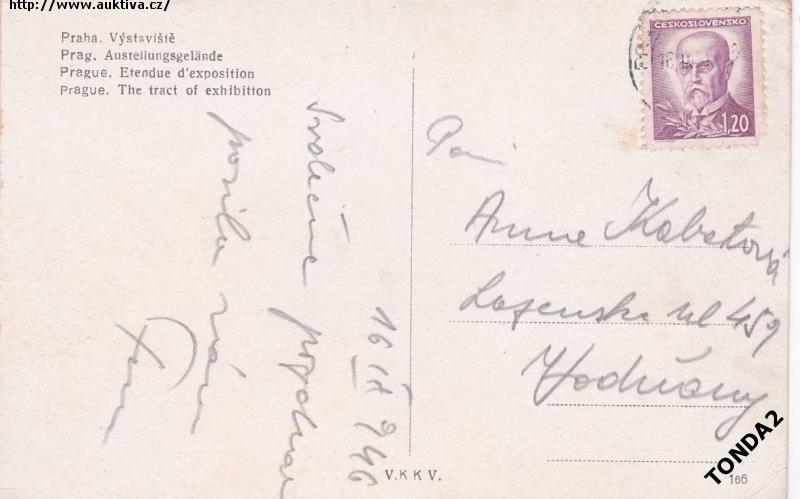 http://www.auktiva.cz/
Praha. Výstaviště
Prag. Austellungsgelände
Prague. Etendue d'exposition
Prague. The tract of exhibition
ČESKOSLOVENSKO
1,20
Srdečné
posílá vám
16 IX 946
Paní
Anna Kabátová
ul 459
Vodňany
V.K K V.
166
TONDA2